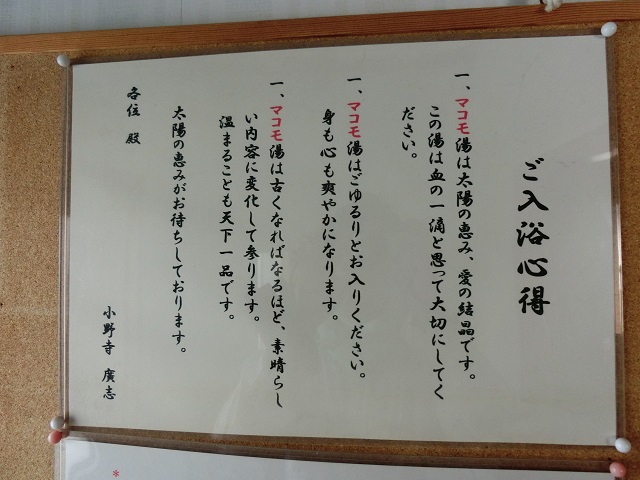 ご入浴心得
一、マコモ湯は太陽の恵み、愛の結晶です。
この湯は血の一滴と思って大切にしてく
ださい。
一、マコモ湯はごゆるりとお入りください。
身も心も爽やかになります。
一、マコモ湯は古くなればなるほど、素晴らし
い内容に変化して参ります。
温まることも天下一品です。
太陽の恵みがお待ちしております。
各位 殿
小野寺 廣志
*